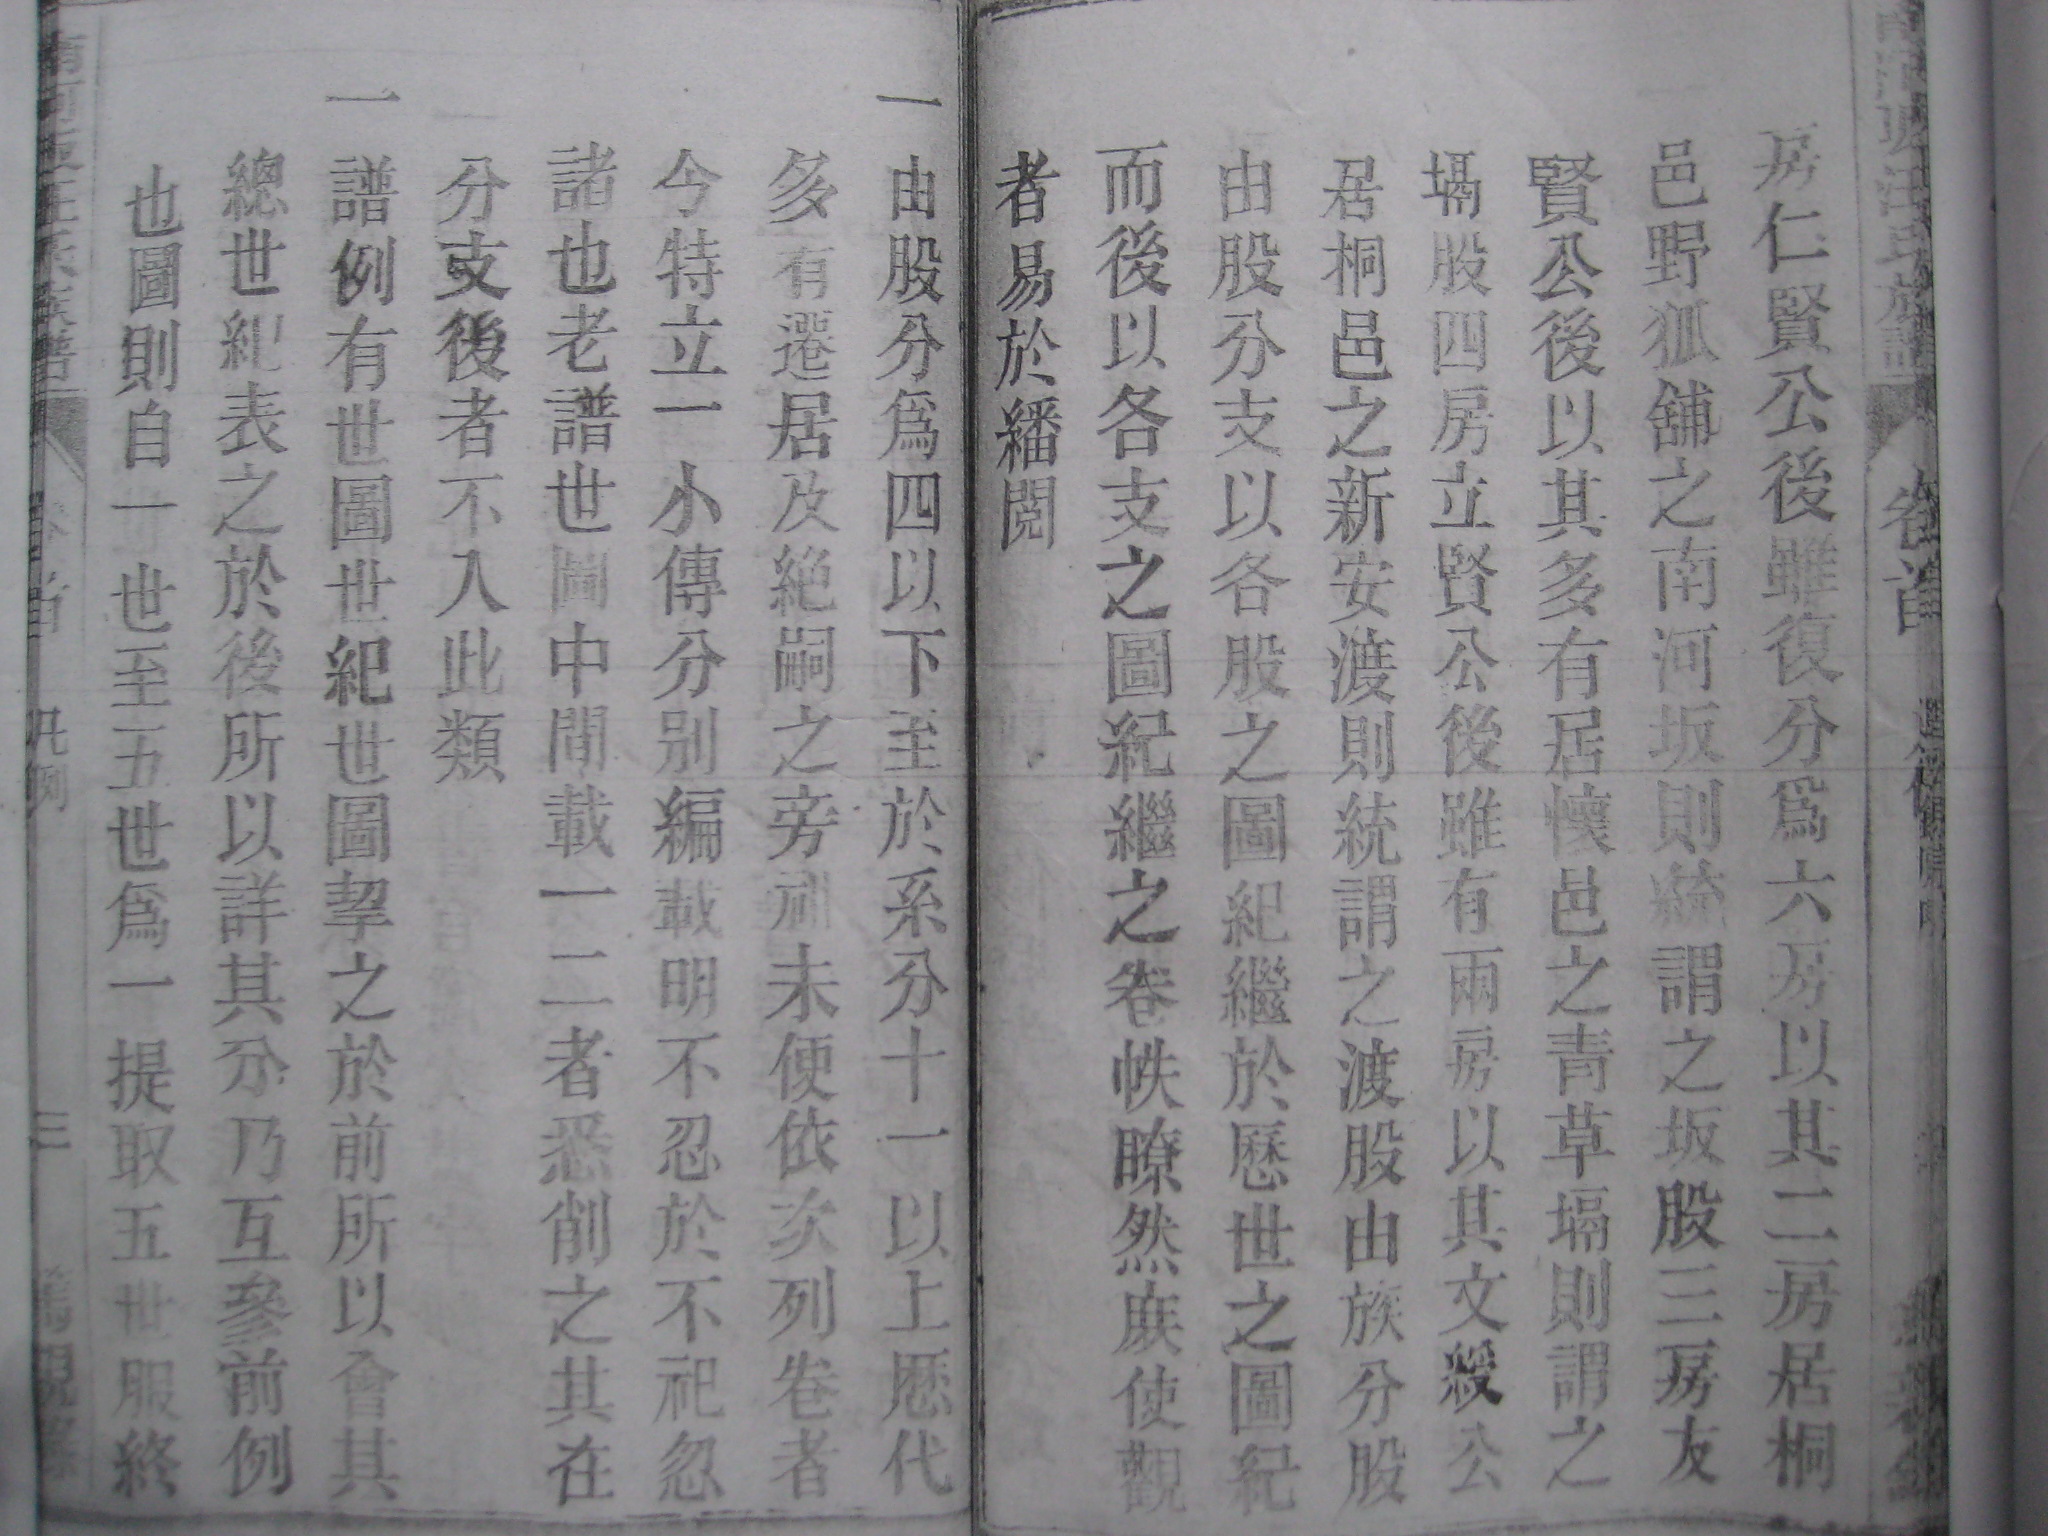 房仁賢公後雖復分爲六房以其二房居桐
邑野狐舖之南河坂則統謂之坂股三房友
賢公後以其多有居懷邑之青草塥則謂之
塥股四房立賢公後雖有兩房以其文綬公
居桐邑之新安渡則統謂之渡股由族分股
由股分支以各股之圖紀繼於歷世之圖紀
而後以各支之圖紀繼之卷帙瞭然庶使觀
者易於繙閱
一由股分爲四以下至於系分十一以上歷代
多有遷居及絕嗣之旁湘未便依次列卷者
今特立一小傳分别編載明不忍於不祀忽
諸也老譜世圖中間載一二者悉削之其在
分支後者不入此類
一譜例有世圖世紀世圖挈之於前所以會其
總世紀表之於後所以詳其分乃互參前例
也圖則自一世至五世爲一提取五世服終
卷首
凡例
三